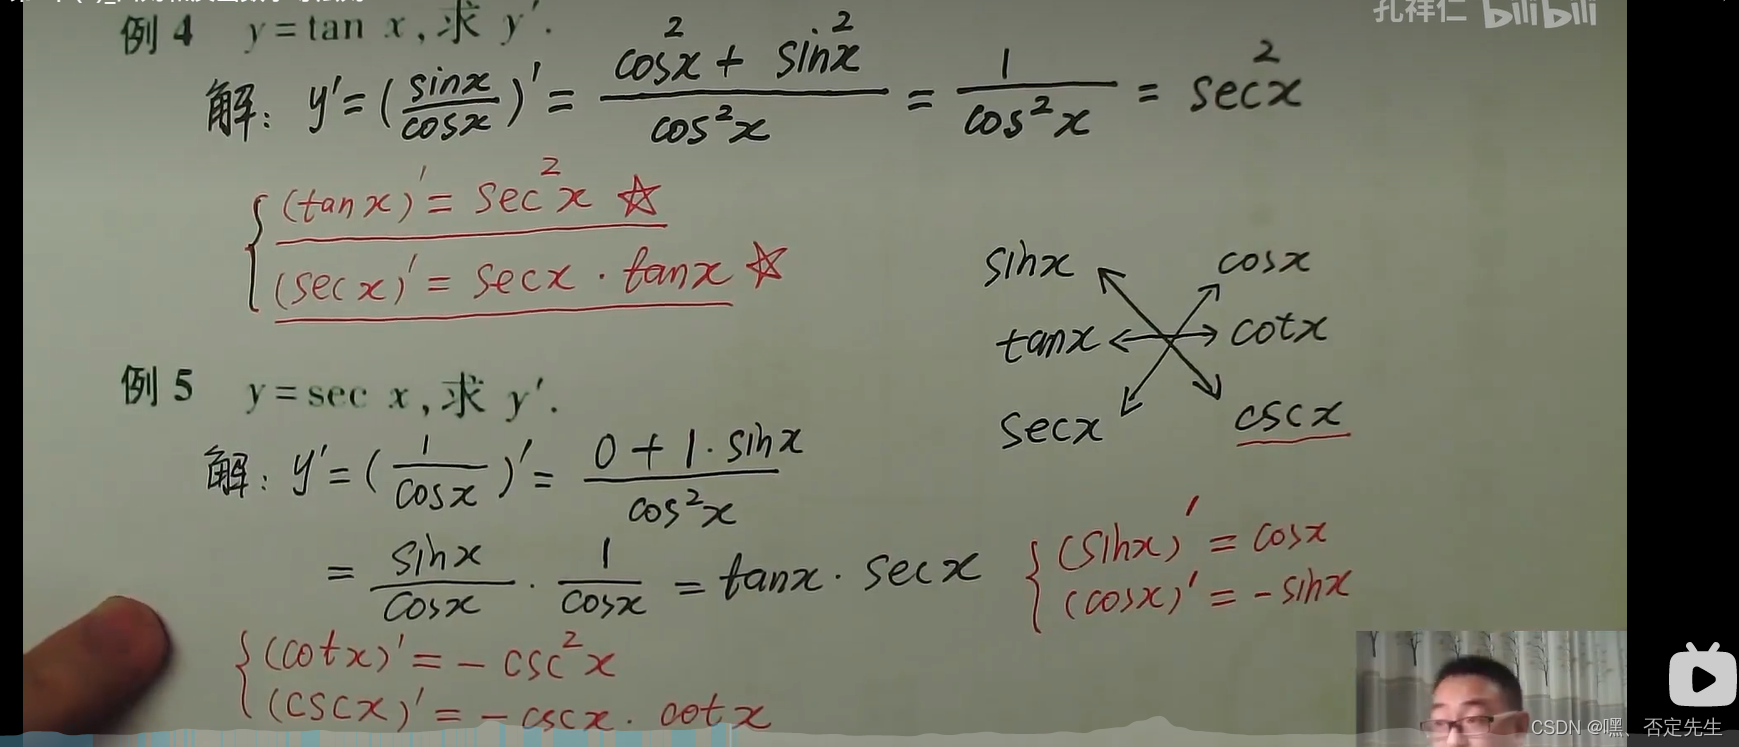 孔祥仁 bilibili
例 4 y = tan x , 求 y′ .
解: y′ = (sinx/cosx)′ = (cos²x + sin²x)/cos²x = 1/cos²x = sec²x
(tanx)′ = sec²x ☆
(secx)′ = secx · tanx ☆
sinx cosx
tanx cotx
secx cscx
例 5 y = sec x , 求 y′ .
解: y′ = (1/cosx)′ = (0 + 1 · sinx)/cos²x
= sinx/cosx · 1/cosx = tanx · secx
(sinx)′ = cosx
(cosx)′ = - sinx
(cotx)′ = - csc²x
(cscx)′ = - cscx · cotx
CSDN @嘿、否定先生